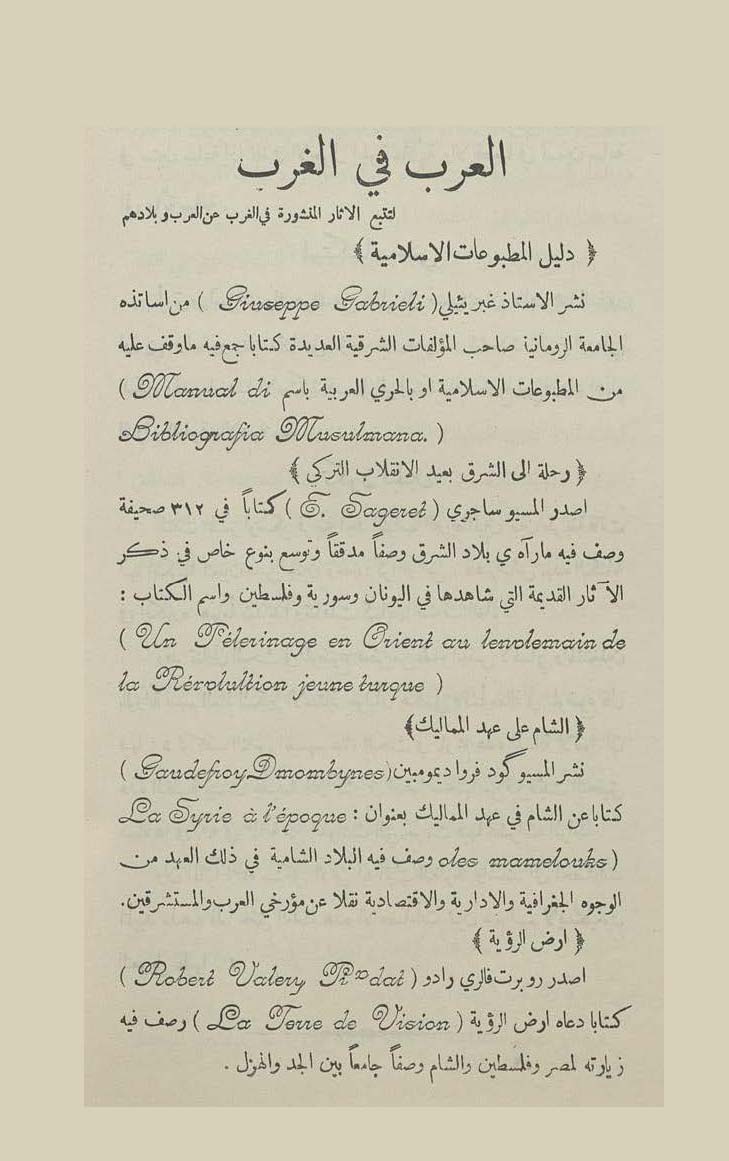 العرب في الغرب
لتتبع الاثار المنشورة في الغرب عن العرب وبلادهم
﴿ دليل المطبوعات الاسلامية ﴾
نشر الاستاذ غبر يئيلي ( Giuseppe Gabrieli ) من اساتذه
الجامعة الرومانية صاحب المؤلفات الشرقية العديدة كتابا جمع فيه ماوقف عليه
من المطبوعات الاسلامية او بالحري العربية باسم ( Manual di
Bibliografia Musulmana. )
﴿ رحلة الى الشرق بعيد الانقلاب التركي ﴾
اصدر المسيو ساجري ( E. Sageret ) كتاباً في ٣١٢ صحيفة
وصف فيه مارآه ي بلاد الشرق وصفاً مدققاً وتوسع بنوع خاص في ذكر
الآثار القديمة التي شاهدها في اليونان وسورية وفلسطين واسم الكتاب :
( Un Pélerinage en Orient au lenolemain de
la Révolultion jeune turque )
﴿ الشام على عهد المماليك ﴾
نشر المسيو گود فروا ديمومبين ( Gaudefroy Dmombynes )
كتابا عن الشام في عهد المماليك بعنوان : La Syrie à l'époque
oles mamelouks ) وصف فيه البلاد الشامية في ذلك العهد من
الوجوه الجغرافية والادارية والاقتصادية نقلا عن مؤرخي العرب والمستشرقين.
﴿ ارض الرؤية ﴾
اصدر روبرت فالري رادو ( Robert Valery )
كتابا دعاه ارض الرؤية ( La Terre de Vision ) رصف فيه
زيارته لمصر وفلسطين والشام وصفاً جامعاً بين الجد والهزل .